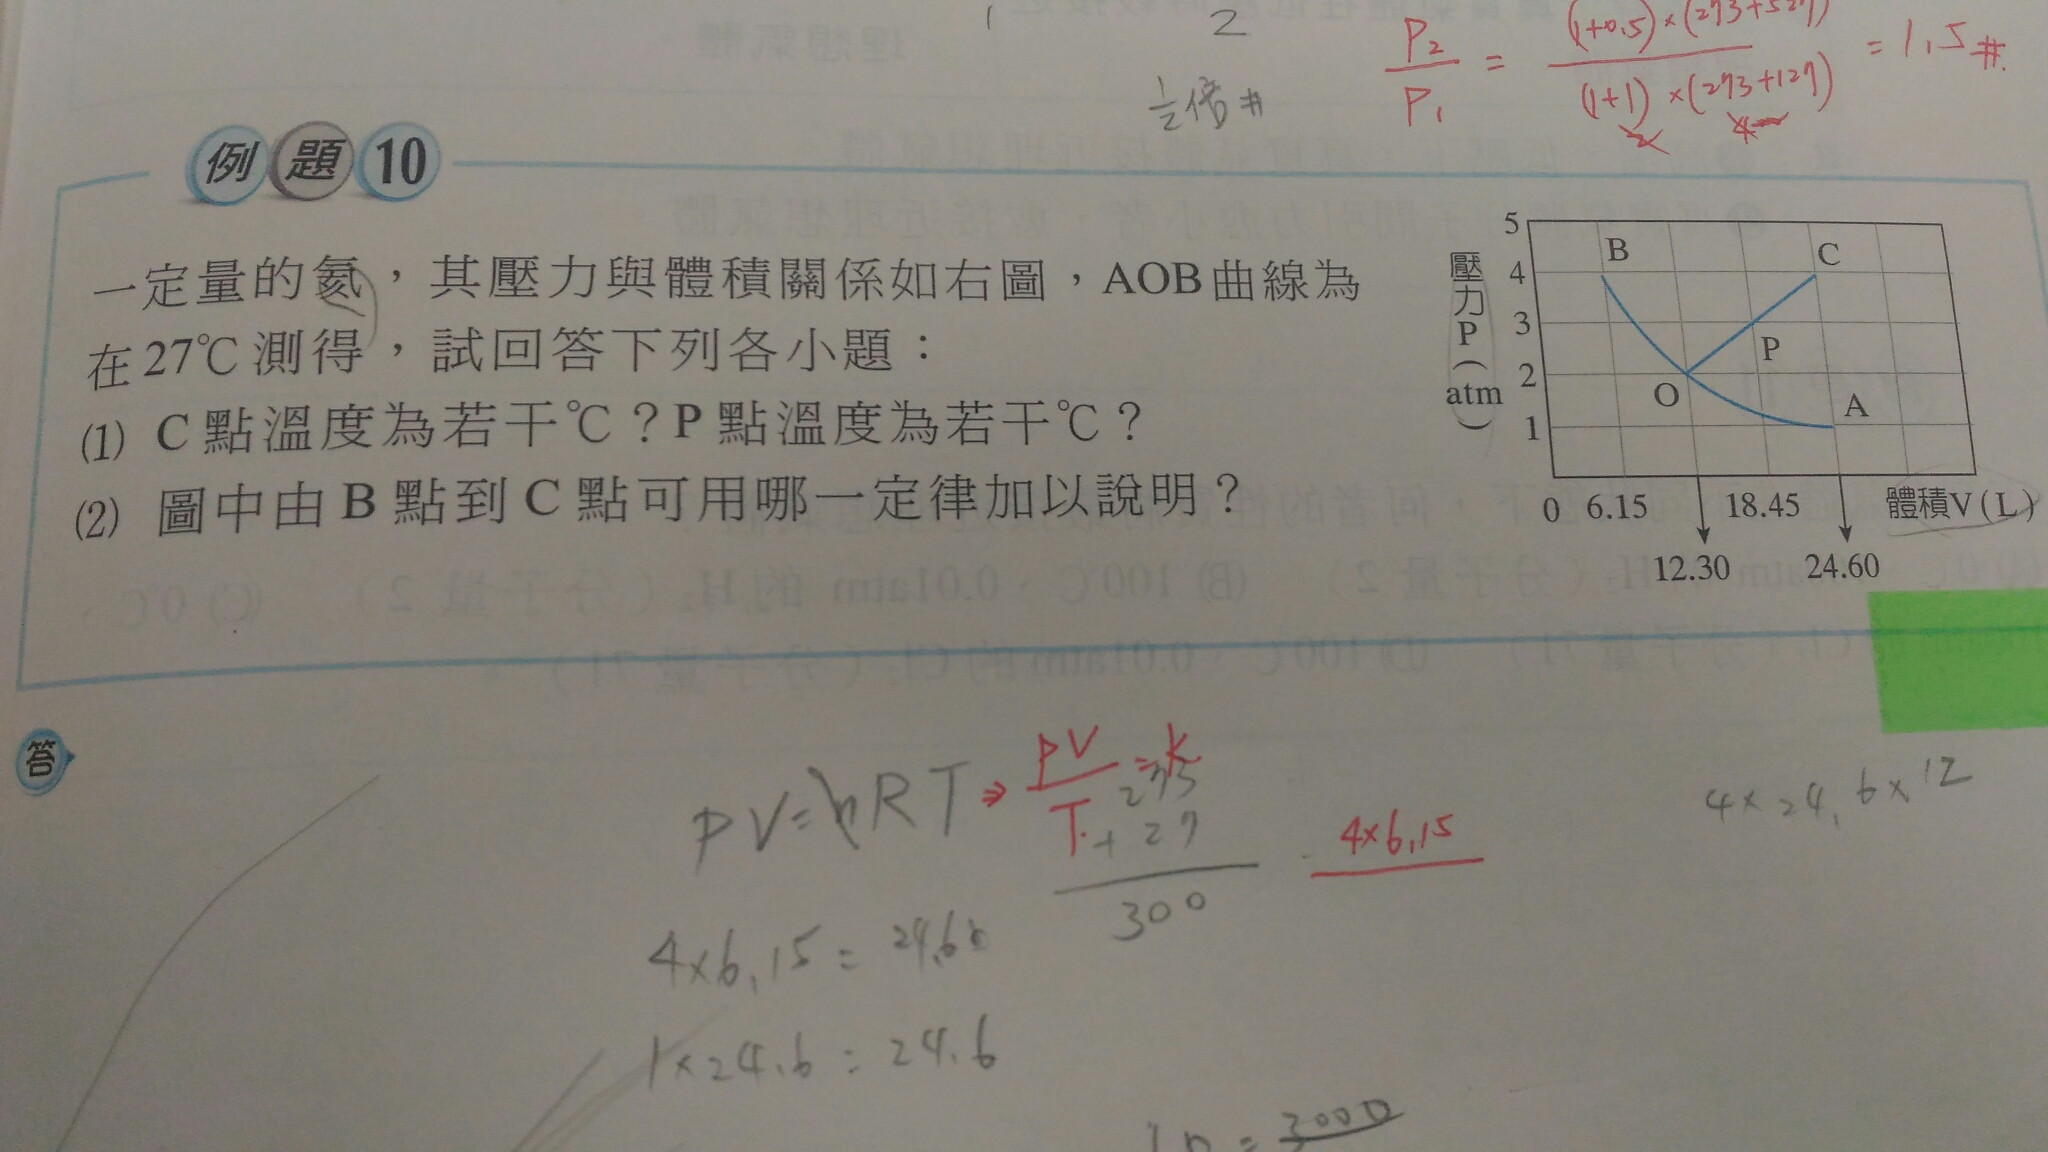 1
2
1/2倍#
P2/P1 = (1+0.5)×(273+527) / (1+1)×(273+127) = 1.5#
2 4
例題10
一定量的氦，其壓力與體積關係如右圖，AOB曲線為
在27℃測得，試回答下列各小題：
(1) C點溫度為若干℃？P點溫度為若干℃？
(2) 圖中由B點到C點可用哪一定律加以說明？
壓力P(atm)
5
4
3
2
1
B
C
P
O
A
0 6.15 18.45 體積V(L)
12.30 24.60
答
PV=nRT⇒PV/T=k
273
+27
300
4×6.15
4×24.6×12
4×6.15=24.60
1×24.6=24.6